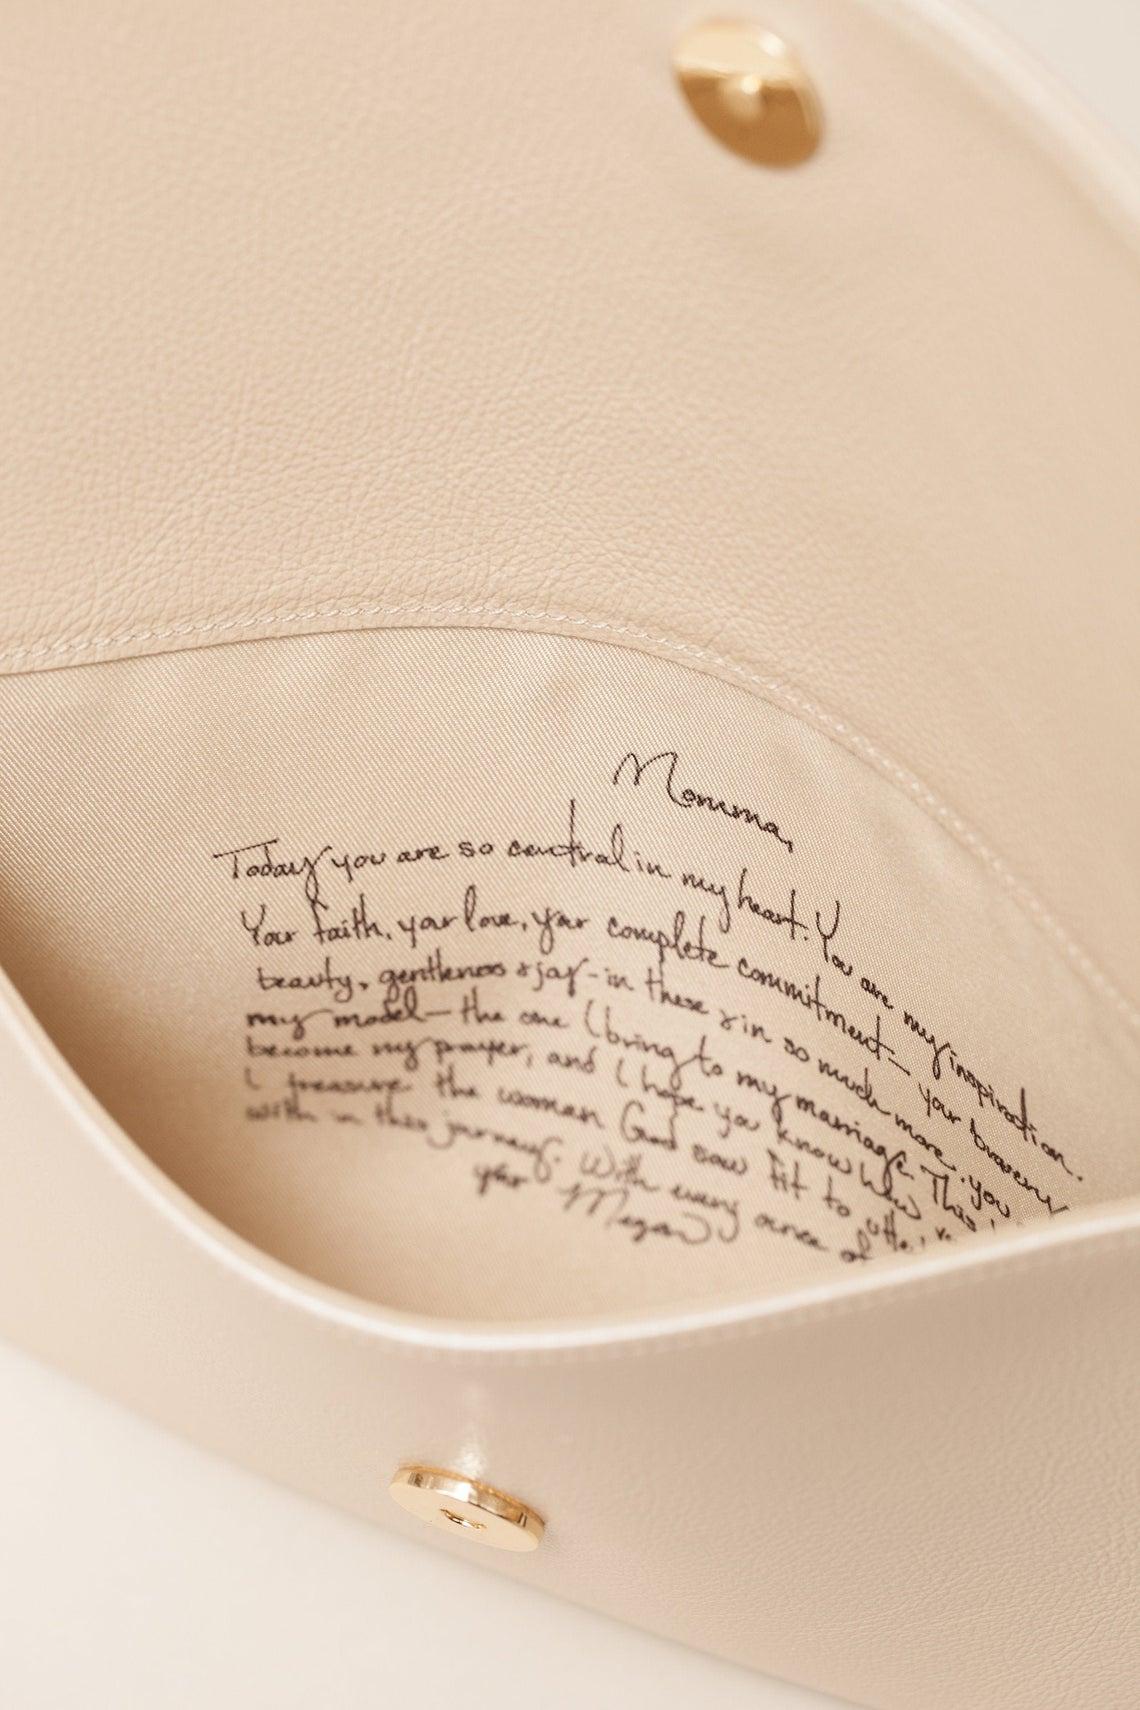 Momma,
Today you are so central in my heart. You are my inspiration.
Your faith, your love, your complete commitment— your bravery
beauty, gentleness & joy—in these & in so much more. you
my model— the one I bring to my marriage. This
become my prayer, and I hope you know how
I treasure the woman God saw fit to
with in this journey. With every ounce of
your Megan